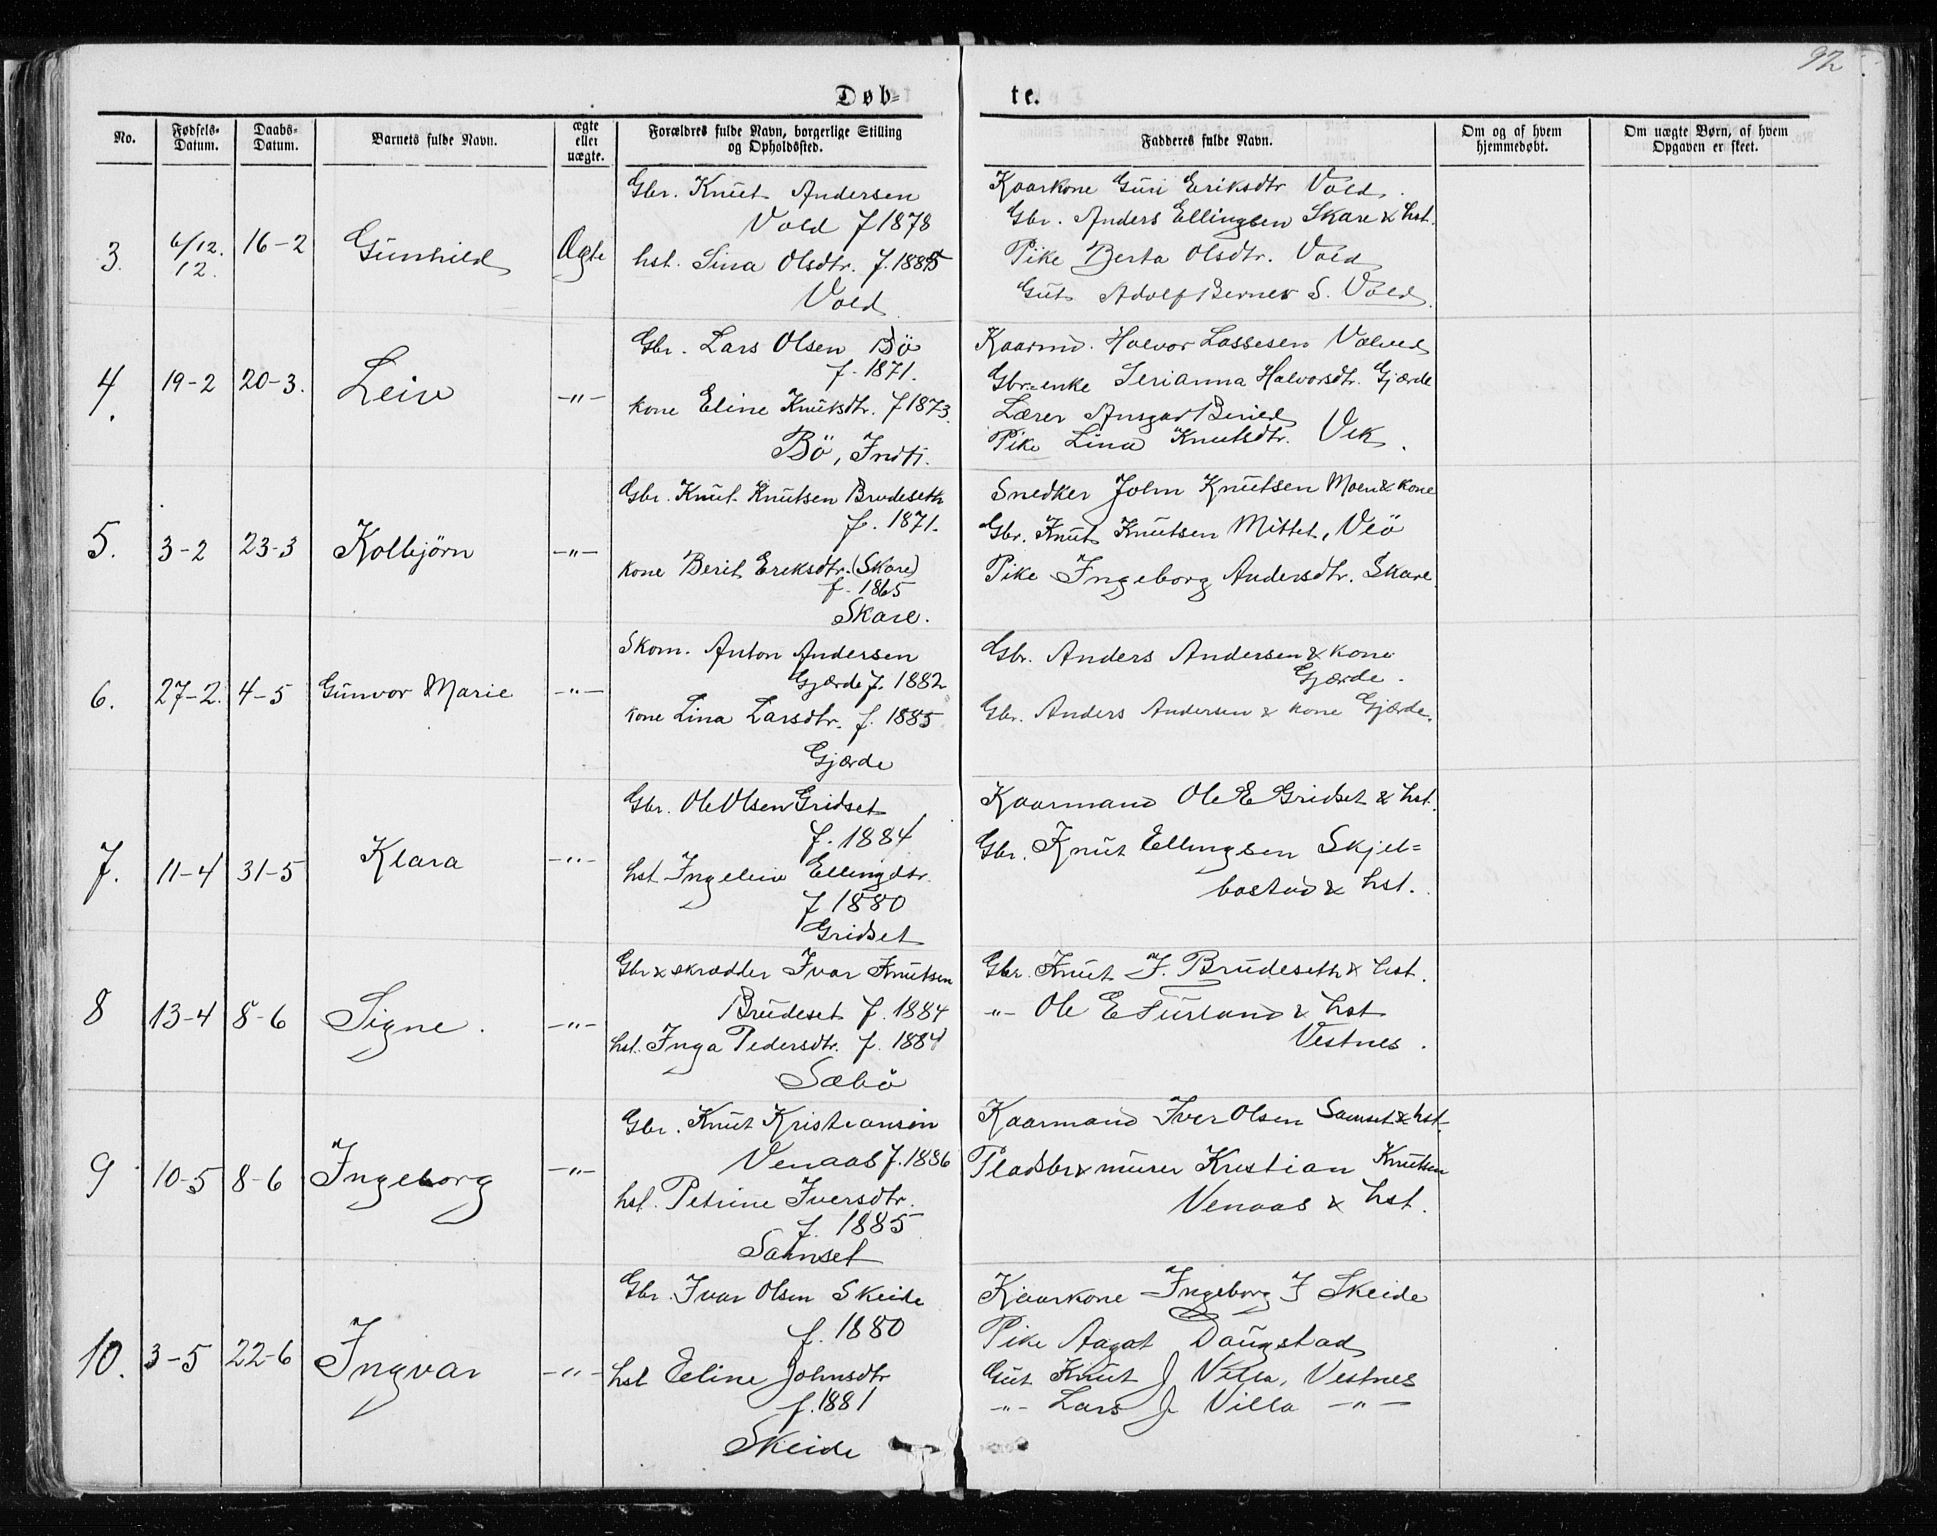 92
Døb=te.
No. Fødsels-Datum. Daabs-Datum. Barnets fulde Navn. ægte eller uægte. Forældres fulde Navn, borgerlige Stilling og Opholdssted. Fadderes fulde Navn. Om og af hvem hjemmedøbt. Om uægte Børn, af hvem Opgaven er skeet.
3. 6/12. 12. 16-2 Gunhild Ægte
Gbr. Knut Andersen
Vold f 1878
hst. Lina Olsdtr. f. 1885
Vold
Kaarkone Guri Eriksdtr Vold.
Gbr. Anders Ellingsen Skare & hst.
Pike Berta Olsdtr. Vold
Gut Adolf Berner S. Vold.
4. 19-2 20-3. Leiv -"-
Gbr. Lars Olsen Bö
f. 1871.
kone Eline Knutsdtr. f 1873.
Bö, Indfj.
Kaarmd. Halvor Lassesen
Gbr=enke Serianna Halvorsdtr. Gjærde
Lærer Ansgar
Pike Lina Knutsdtr. Vik.
5. 3-2 23-3 Kolbjörn -"-
Gbr. Knut Knutsen Brudeseth
f. 1871.
kone Berit Eriksdtr. (Skare)
f. 1865
Skare.
Snedker John Knutsen Moen & kone
Gbr. Knut Knutsen Mittet, Veö
Pike Ingeborg Andersdtr. Skare
6. 27-2. 4-5 Gunvor Marie -"-
Skom. Anton Andersen
Gjærde f. 1882
kone Lina Larsdtr. f. 1885
Gjærde
Gbr. Anders Andersen & kone
Gjærde.
Gbr. Anders Andersen & kone Gjærde.
7. 11-4 31-5 Klara -"-
Gbr. Ole Olsen Gridset
f. 1884
hst. Ingeleiv Ellingdtr.
f 1880
Gridset
Kaarmand Ole E Gridset & hst.
Gbr. Knut Ellingsen Skjel=
bostad & hst.
8 13-4 8-6 Signe. -"-
Gbr & skrædder Ivar Knutsen
Brudeset f. 1884
hst. Inga Pedersdtr. f. 1884
Sæbö
Gbr. Knut J. Brudeseth & hst.
-"- Ole E Furland & hst
Vestnes.
9 10-5 8-6 Ingeborg -"-
Gbr. Knut Kristiansen
Venaas f. 1886
hst. Petrine Iversdtr.
f. 1885
Samset
Kaarmand Iver Olsen Samset & hst.
Pladsbr & murer Kristian Knutsen
Venaas & hst.
10. 3-5 22-6 Ingvar -"-
Gbr. Ivar Olsen Skeide
f. 1880
hst Eline Johnsdtr
f. 1881
Skeide
Kaarkone Ingeborg I Skeide
Pike Aagot Daugstad
Gut Knut J Villa, Vestnes
-"- Lars J Villa -"-